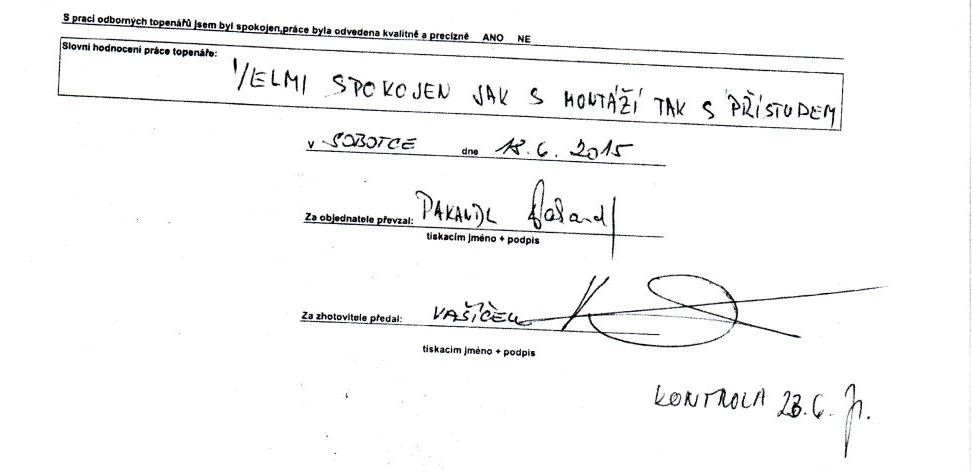 S praci odborných topenářů jsem byl spokojen,práce byla odvedena kvalitně a precizně ANO NE
Slovní hodnocení práce topenáře:
VELMI SPOKOJEN JAK S MONTÁŽÍ TAK S PŘÍSTUDEM
v SOBOTCE dne 18.6.2015
Za objednatele převzal: PAKANDL
tiskacím jméno + podpis
Za zhotovitele předal: VAŠÍČEK
tiskacím jméno + podpis
KONTROLA 23.6.